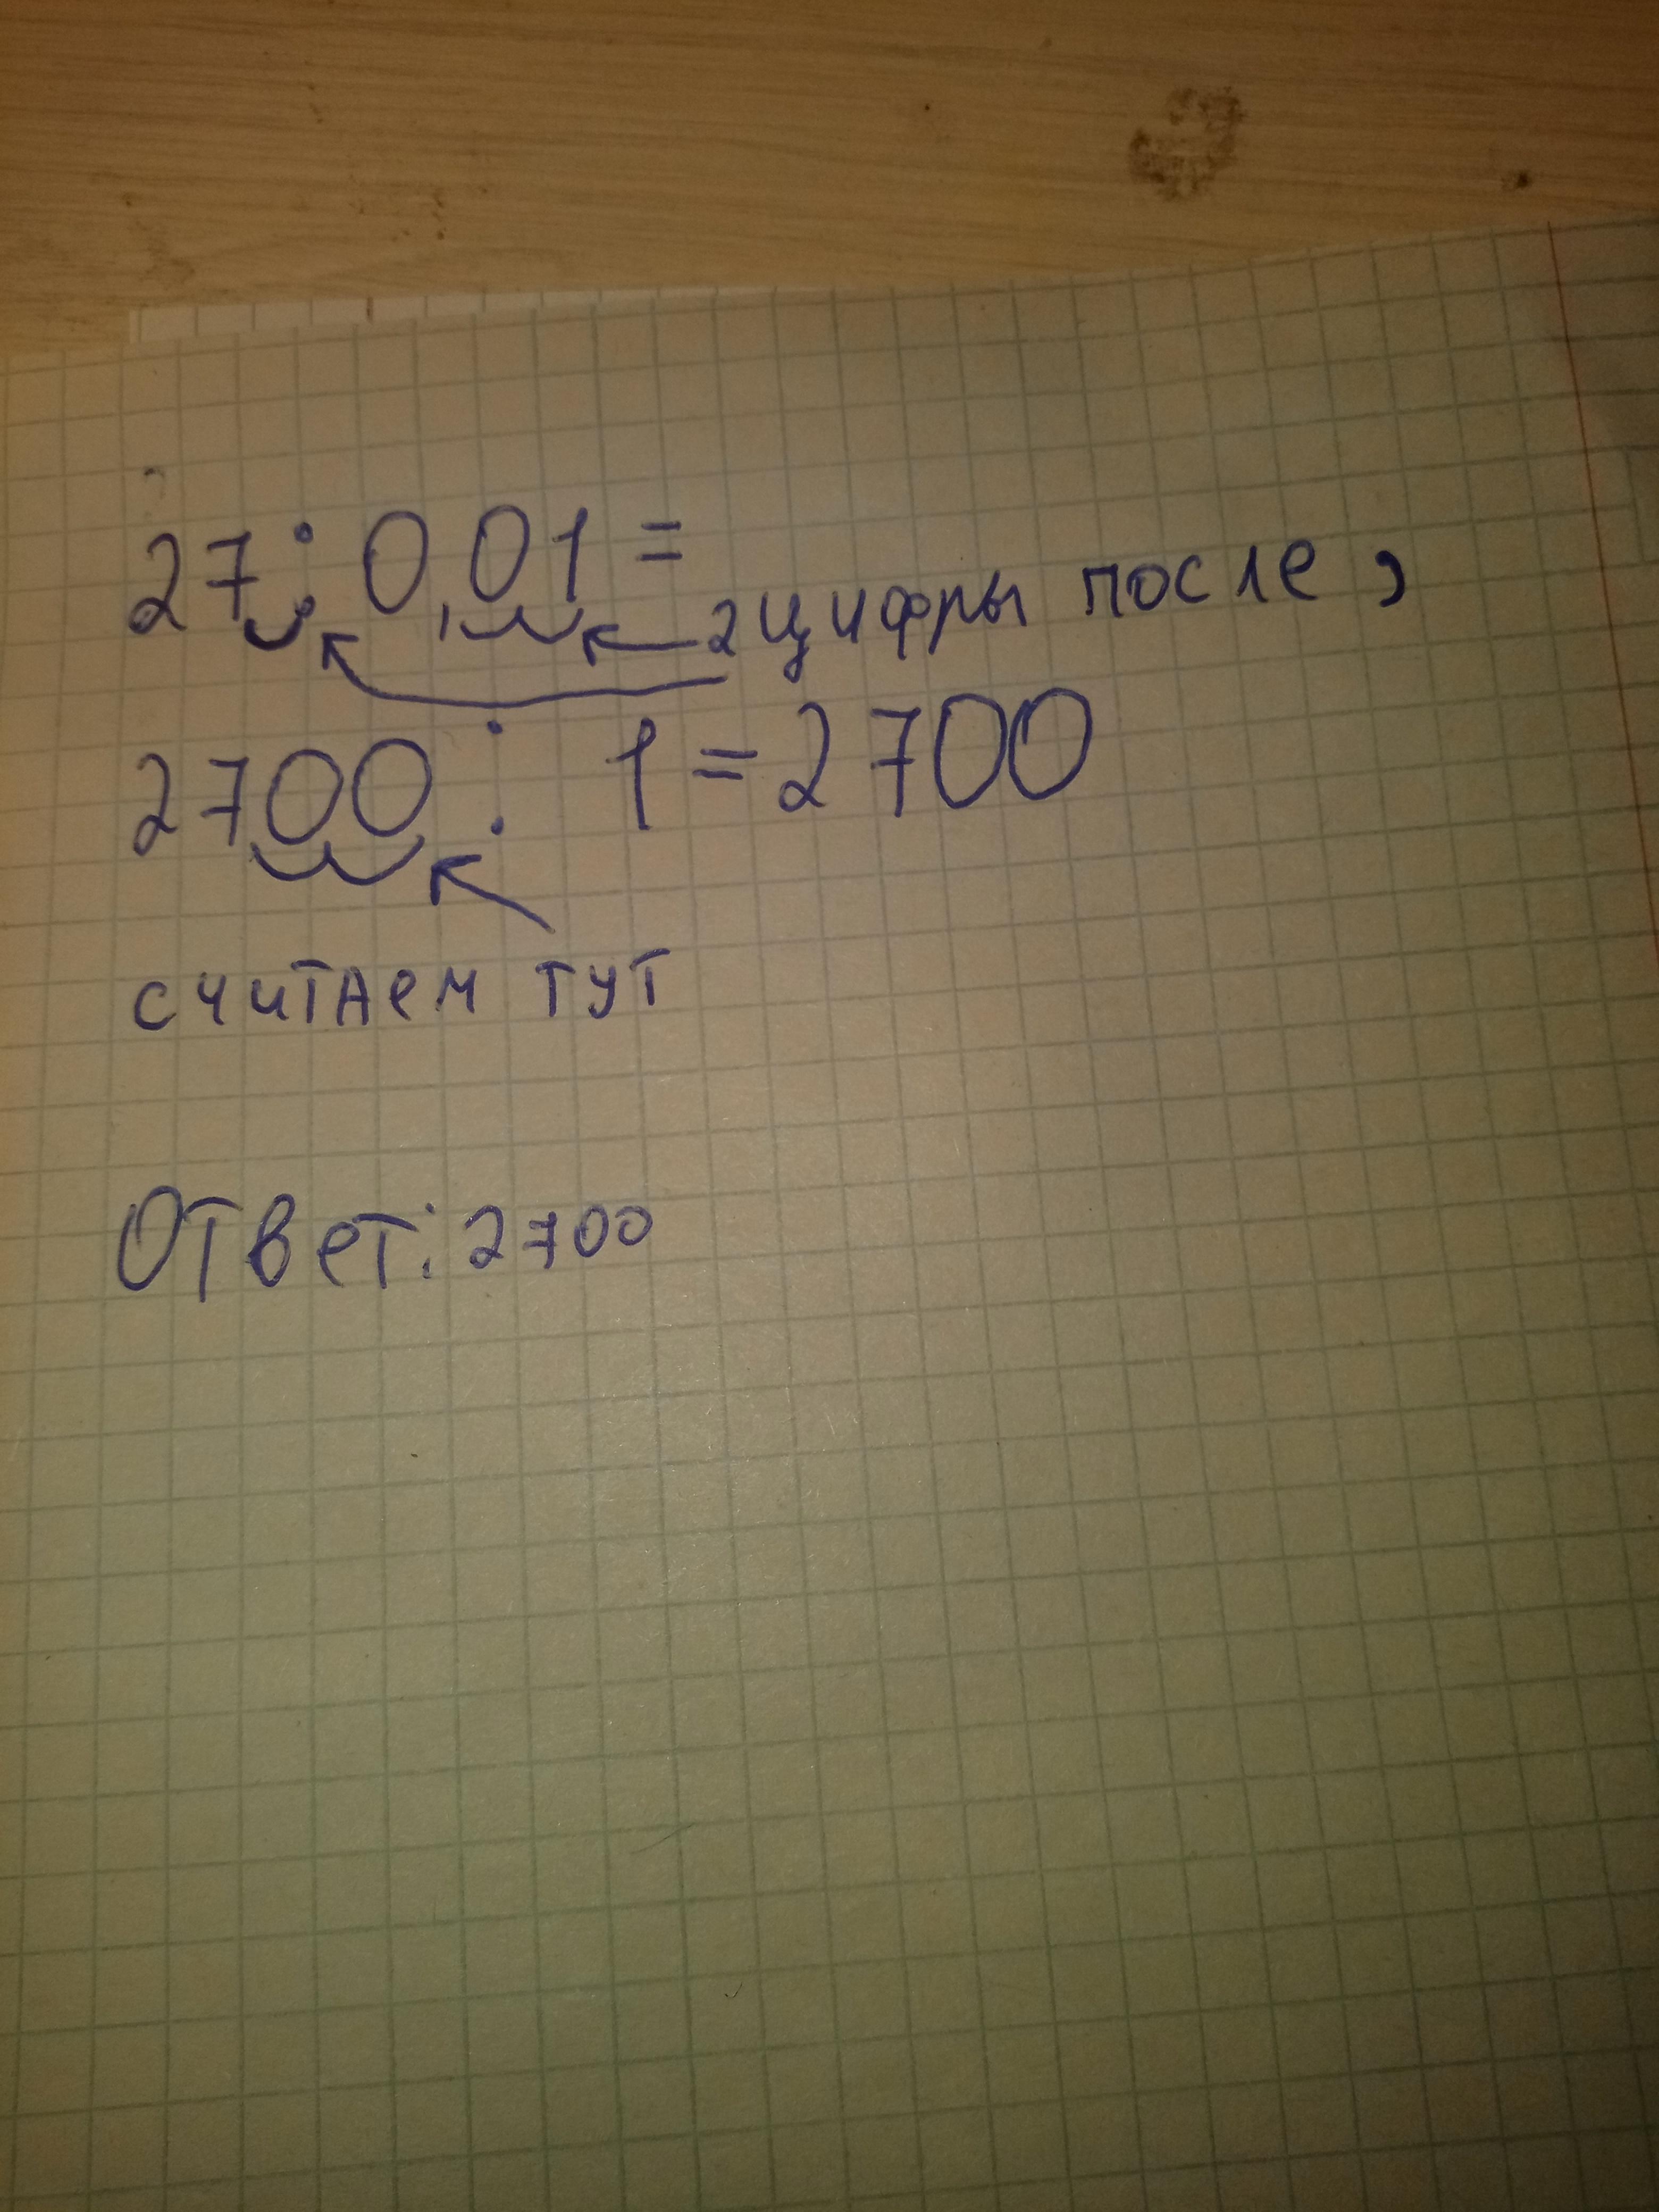 27 : 0,01 =
2 цифры после ,
2700 : 1 = 2700
считаем тут
Ответ: 2700